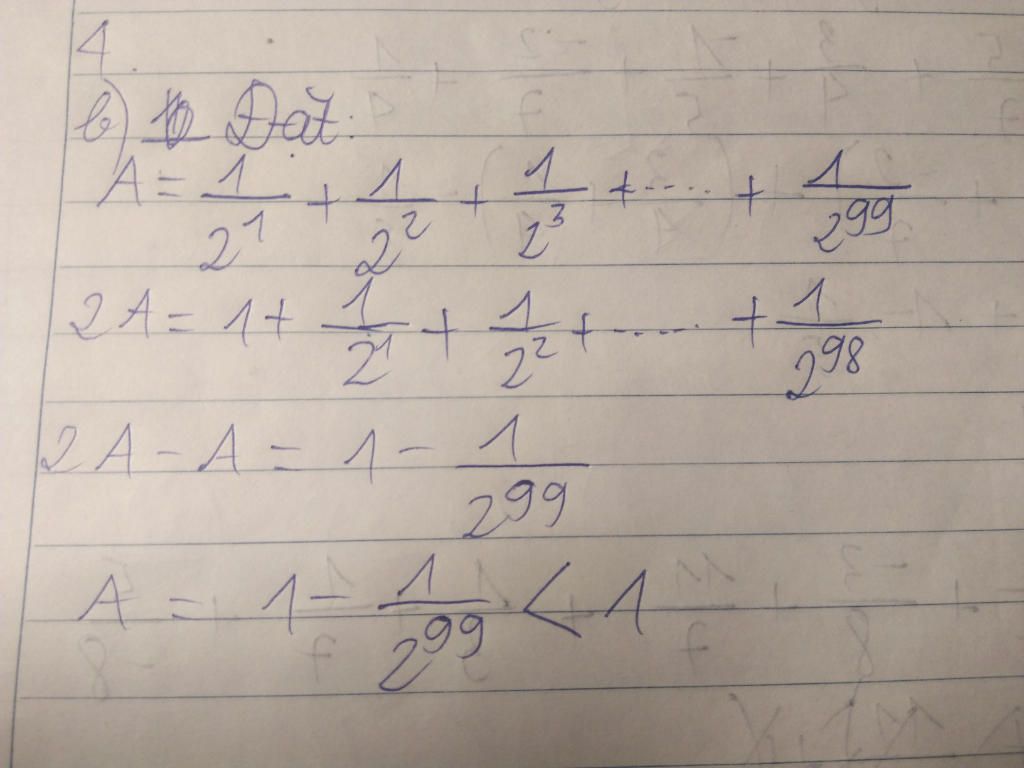 4
b) Đặt:
A = 1/2^1 + 1/2^2 + 1/2^3 + ..... + 1/2^99
2A = 1 + 1/2^1 + 1/2^2 + ...... + 1/2^98
2A - A = 1 - 1/2^99
A = 1 - 1/2^99 < 1